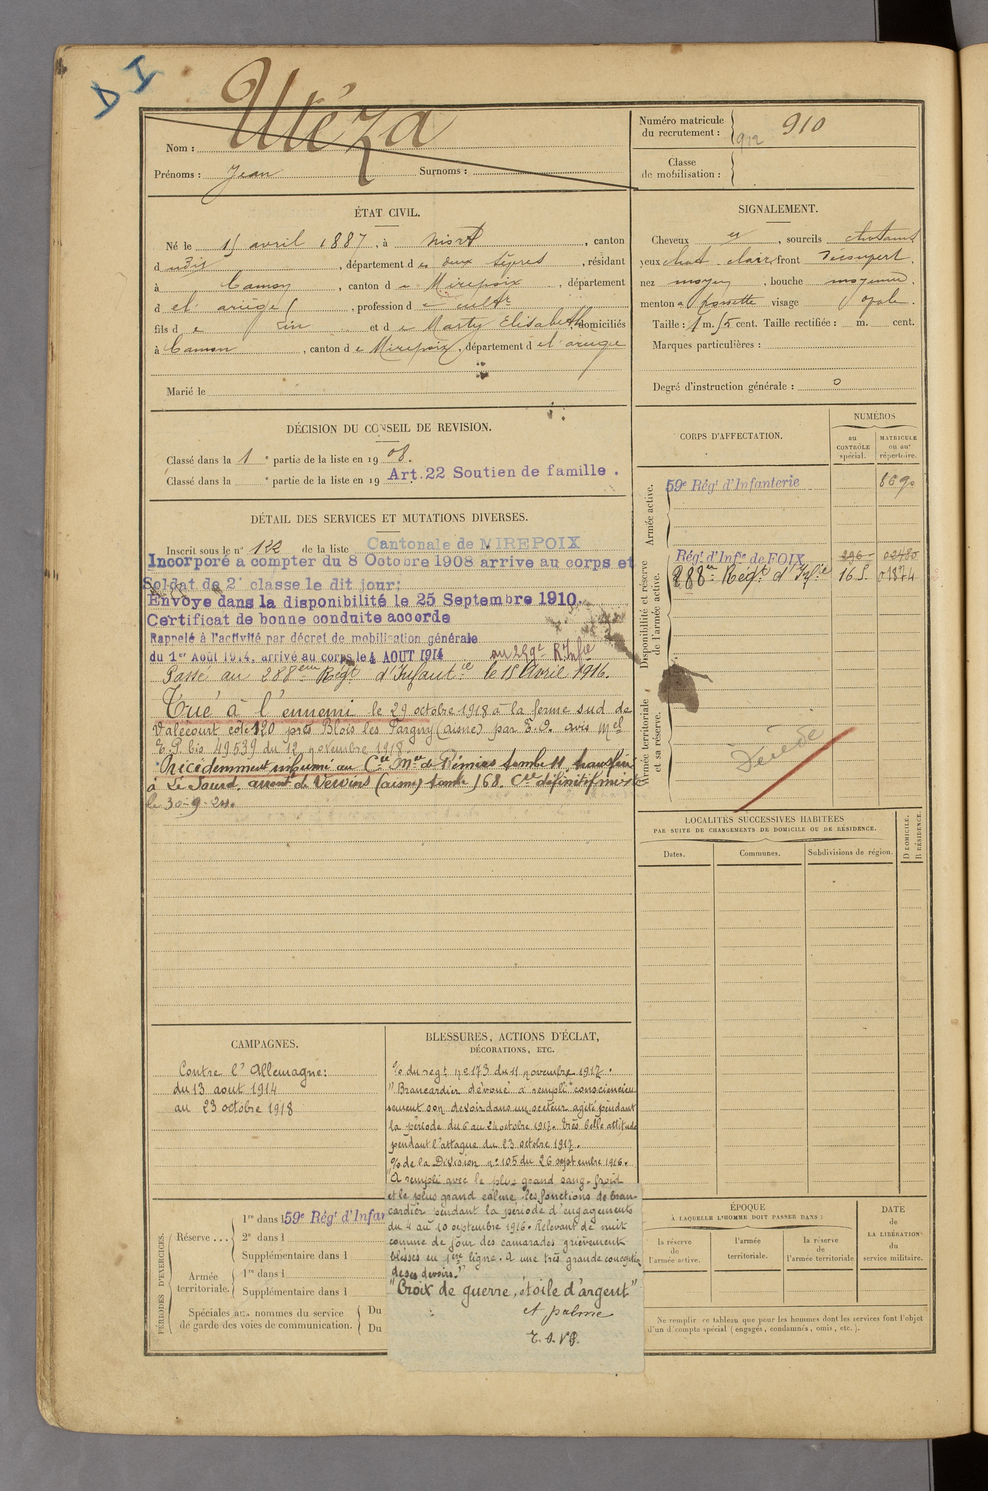 D I
Utéza
Nom :
Prénoms : Jean Surnoms :
Numéro matricule du recrutement : 910
912
Classe de mobilisation :
ÉTAT CIVIL.
Né le 15 avril 1887, à Niort, canton
dudit, département des deux Sèvres, résidant
à Camon, canton de Mirepoix, département
d el' ariège, profession de cultr
fils de et de Marty Elisabeth, domiciliés
à Camon, canton de Mirepoix, département d el' ariège
Marié le
SIGNALEMENT.
Cheveux et, sourcils chatains
yeux chat. clair, front découvert.
nez moyen, bouche moyenne.
menton à fossette visage ovale.
Taille : 1 m. cent. Taille rectifiée : m. cent.
Marques particulières :
Degré d'instruction générale : 0
DÉCISION DU CONSEIL DE REVISION.
Classé dans la 1e partie de la liste en 1908.
Classé dans la e partie de la liste en 19 Art. 22 Soutien de famille.
DÉTAIL DES SERVICES ET MUTATIONS DIVERSES.
Inscrit sous le n° 122 de la liste Cantonale de MIREPOIX
Incorporé à compter du 8 Octobre 1908 arrive au corps et
Soldat de 2e classe le dit jour;
Envoye dans la disponibilité le 25 Septembre 1910.
Certificat de bonne conduite accorde
Rappelé à l'activité par décret de mobilisation générale
du 1er Août 1914, arrivé au corps le 4 AOUT 1914 au Rt Infie
Passé au 288ème Régt d'Infantie le 15 Avril 1916.
Tué à l'ennemi le 29 octobre 1918 à la ferme sud de
Valécourt cote 120 près Blois les Pargny (aisne) par E.O. avis Mel
E.P. bis 49539 du 12 novembre 1918.
Précédemment inhumé au Cre Mre de Rémies tombe 11, transféré
à Le Sourd, arront de Vervins (aisne) tombe 168. Cre définitif mixte
le 30-9-24.
CORPS D'AFFECTATION.
NUMÉROS
au CONTRÔLE spécial.
MATRICULE ou au répertoire.
Armée active.
59e Régt d'Infanterie
Disponibilité et réserve de l'armée active.
Régt d'Infie de FOIX 296 02480
288em Régt d'Infie 16 S. 01374
Armée territoriale et sa réserve.
Décédé
LOCALITÉS SUCCESSIVES HABITÉES
PAR SUITE DE CHANGEMENTS DE DOMICILE OU DE RÉSIDENCE.
Dates. Communes. Subdivisions de région. D DOMICILE. R RÉSIDENCE.
CAMPAGNES.
Contre l'Allemagne:
du 13 aout 1914
au 23 octobre 1918
BLESSURES, ACTIONS D'ÉCLAT,
DÉCORATIONS, ETC.
% du regt n° 173 du 11 novembre 1917.
"Brancardier dévoué a rempli consciencieu
sement son devoir dans un secteur agité pendant
la période du 6 au 24 octobre 1917. très belle attitude
pendant l'attaque du 23 octobre 1917.
% de la Division n° 105 du 26 septembre 1916.
"A rempli avec le plus grand sang-froid
et le plus grand calme, les fonctions de bran-
cardier pendant la période d'engagements
du 4 au 10 septembre 1916. Relevant de nuit
comme de jour des camarades grièvement
blessés en 1ère ligne. A une très grande conception
de ses devoirs."
"Croix de guerre, étoile d'argent"
et palme
PÉRIODES D'EXERCICES.
Réserve ...
1re dans l 59e Régt d'Infan
2e dans l
Supplémentaire dans l
Armée territoriale.
1re dans l
Supplémentaire dans l
Spéciales aux hommes du service de garde des voies de communication.
Du
Du
ÉPOQUE
À LAQUELLE L'HOMME DOIT PASSER DANS :
la réserve de l'armée active.
l'armée territoriale.
la réserve de l'armée territoriale
DATE de LA LIBÉRATION du service militaire.
Ne remplir ce tableau que pour les hommes dont les services font l'objet
d'un décompte spécial (engagés, condamnés, omis, etc.).